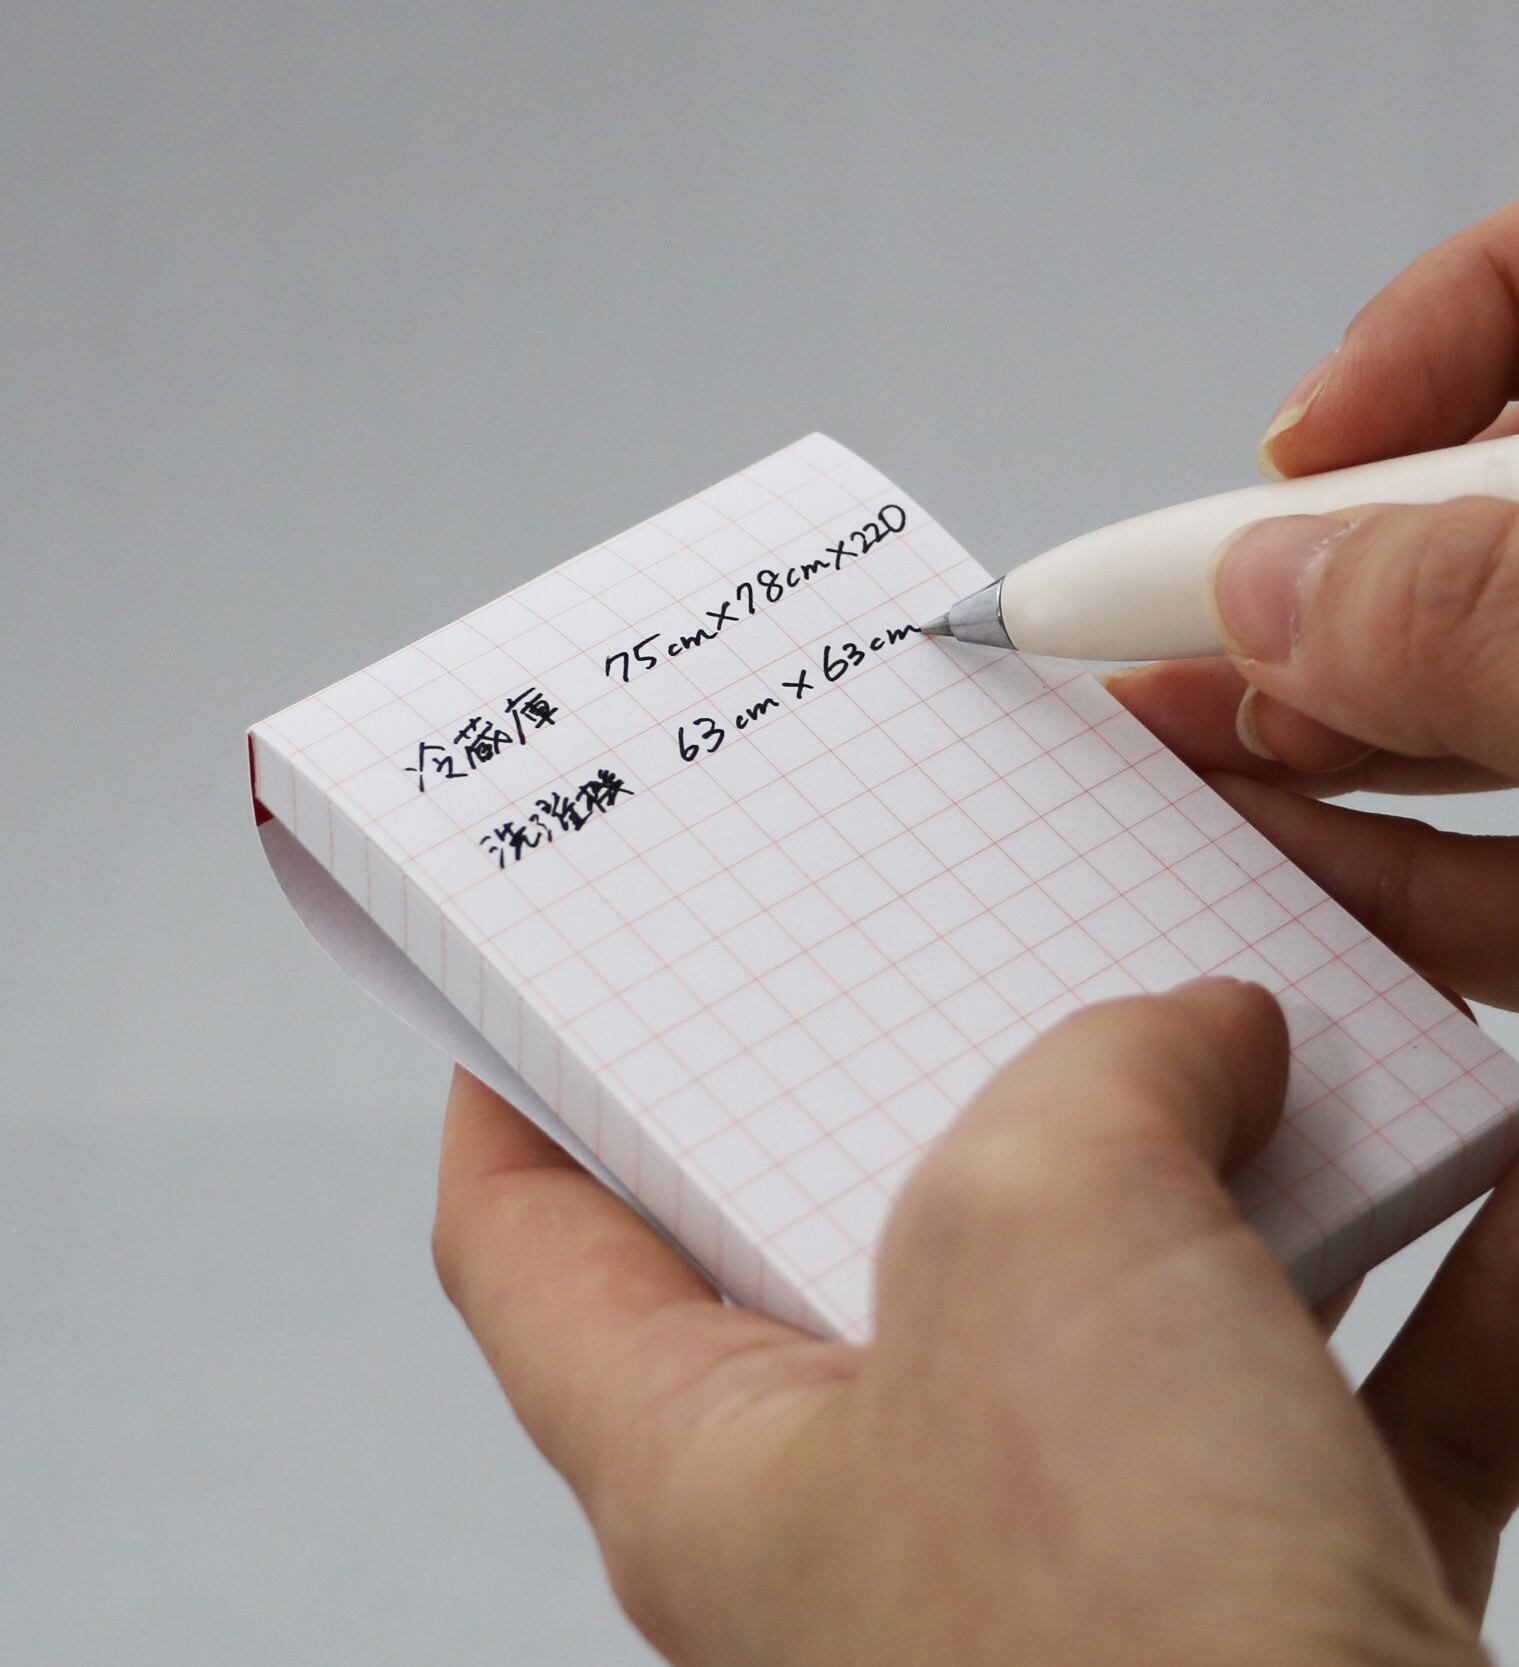 冷蔵庫 75cm×78cm×220
洗濯機 63cm×63cm